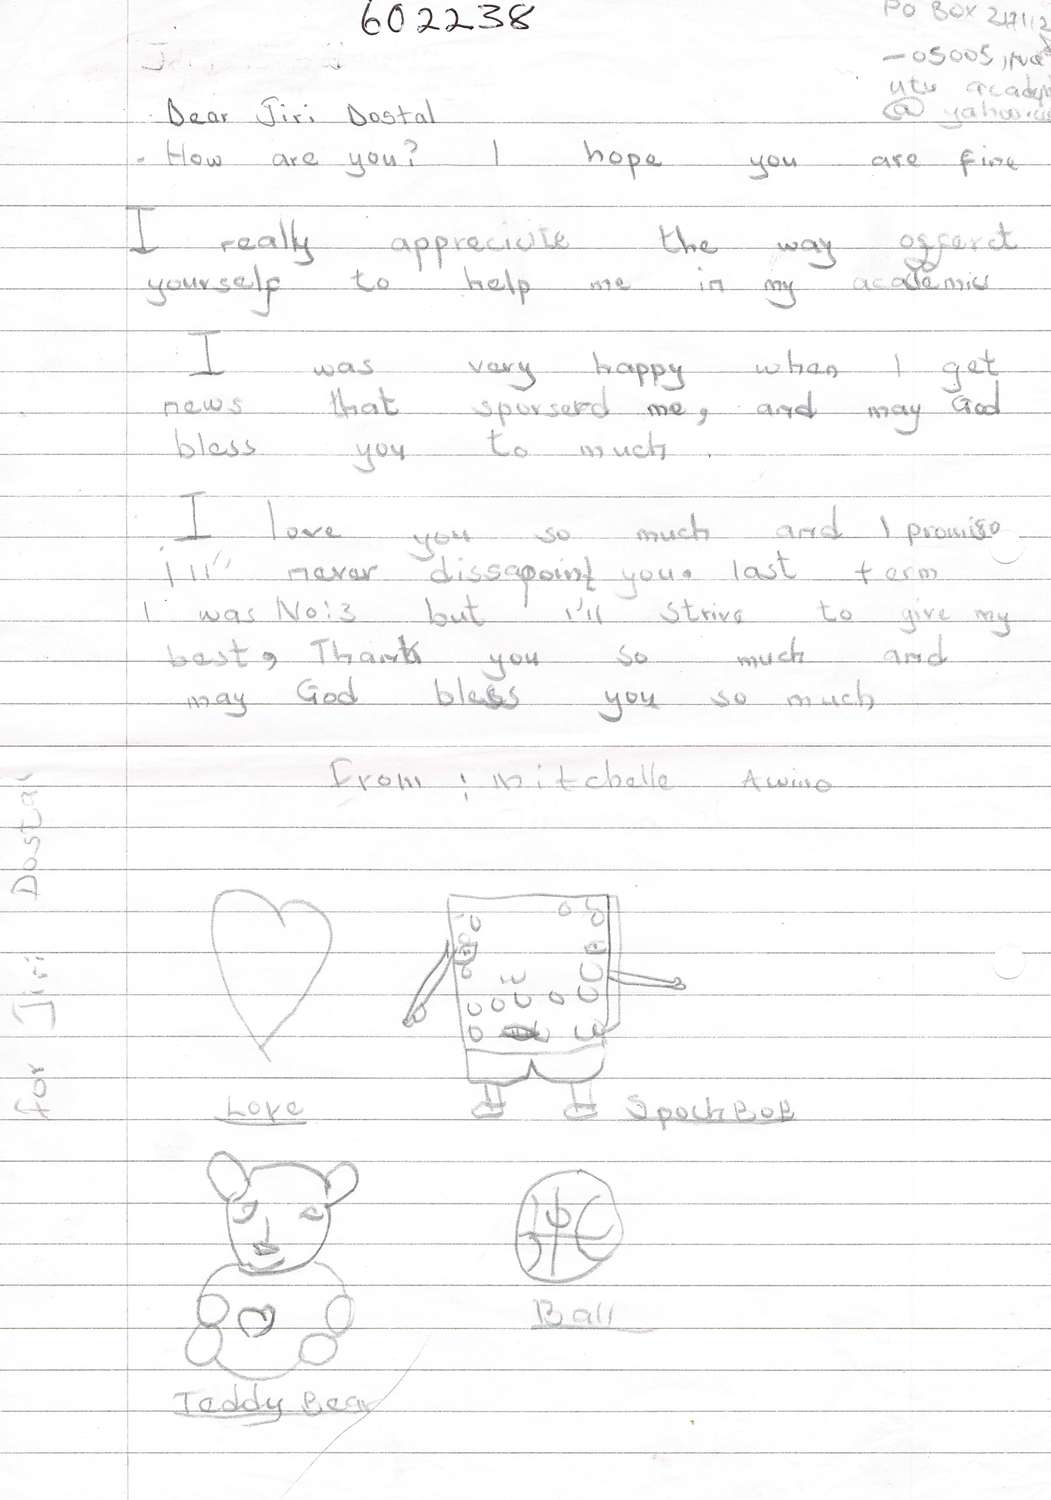 602238
PO BOX
Dear Jiri Dostal
How are you? I hope you are fine
I really appreciate the way offerd
yourself to help me in my academic
I was very happy when I get
news that spurserd me, and may God
bless you to much.
I love you so much and I promise
I'll never dissapoint you. last term
I was No:3 but I'll strive to give my
best, Thank you so much and
may God bless you so much
From: Mitchelle Awino
for Jiri Dostal
Love
SpochBoB
Ball
Teddy Bear